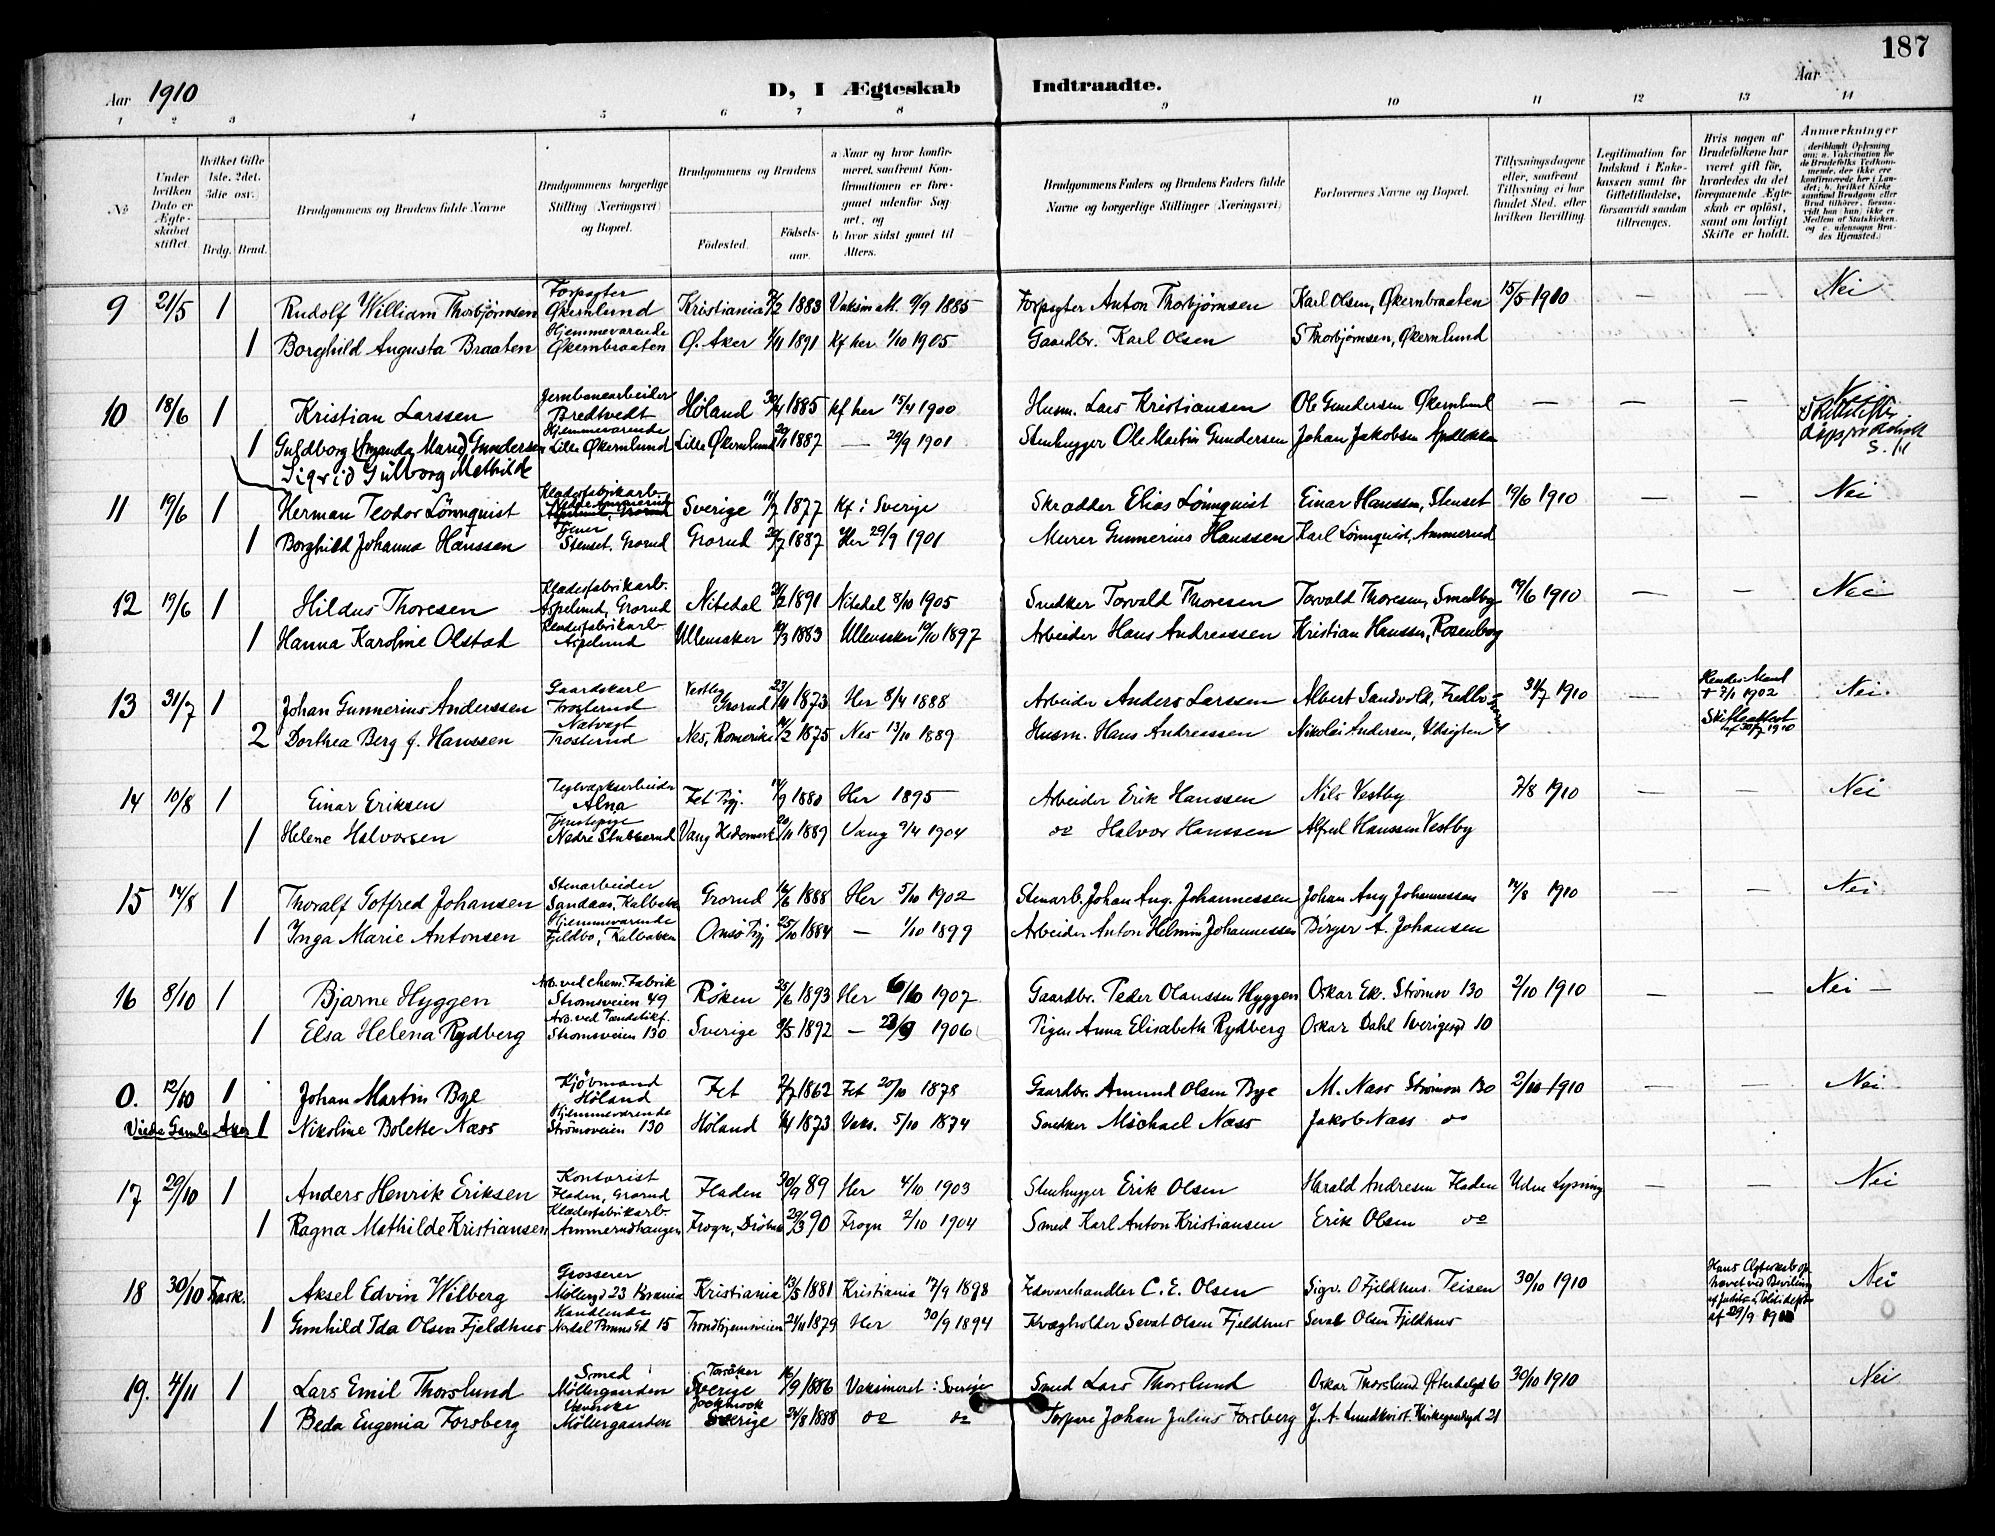 187
Aar 1910
D, I Ægteskab Indtraadte.
Aar
1 2 3 4 5 6 7 8 9 10 11 12 13 14
№
Under hvilken Dato er Ægteskabet stiftet.
Hvilket Gifte 1ste. 2det. 3die osv.
Brdg. Brud.
Brudgommens og Brudens fulde Navne
Brudgommens borgerlige Stilling (Næringsvei) og Bopæl.
Brudgommens og Brudens
Fødested. Fødselsaar.
a Naar og hvor konfirmeret, saafremt Konfirmationen er foregaaet udenfor Sognet, og
b hvor sidst gaaet til Alters.
Brudgommens Faders og Brudens Faders fulde Navne og borgerlige Stillinger (Næringsvei)
Forlovernes Navne og Bopæl.
Tillysningsdagene eller, saafremt Tillysning ei har fundet Sted, efter hvilken Bevilling.
Legitimation for Indskud i Enkekassen samt for Giftetilladelse, forsaavidt saadan tiltrænges.
Hvis nogen af Brudefolkene har været gift før, hvorledes da det foregaaende Ægteskab er opløst, samt om lovligt Skifte er holdt.
Anmærkninger
9 21/5 1 Rudolf William Thorbjørnsen Forpagter Økernlund Kristiania 1883 Vaksinatt. 9/9 1885 Forpagter Anton Thorbjørnsen Karl Olsen, Økernbraaten 15/5 1910 — — Nei
1 Borghild Augusta Braaten Hjemmeværende Økernbraaten Ø. Aker 1891 Kf her 1/10 1905 Gaardbr. Karl Olsen S Thorbjørnsen, Økernlund
10 18/6 1 Kristian Larssen Jernbanearbeider Bredtvedt Høland 30/4 1885 Kf her 15/4 1900 Husm. Lars Kristiansen Ole Gundersen Økernlund — — —
1 Guldborg (Amanda Marie) Gundersen Hjemmeværende Lille Økernlund Lille Økernlund 1887 — 29/9 1901 Stenhugger Ole Martin Gundersen Johan Jakobsen
Sigrid Gulborg Mathilde
11 19/6 1 Herman Teodor Lönnquist Klædesfabrikarb. Sverige 1877 Kf i Sverige Skrædder Elias Lönnquist Einar Hanssen, Stenset 19/6 1910 — — Nei
1 Borghild Johanna Hanssen Stenset, Grorud Grorud 1887 Her 29/9 1901 Murer Gunnerius Hanssen Karl Lönnquist, Ammerud
12 19/6 1 Hildus Thoresen Klædesfabrikarb. Aspelund, Grorud Nitedal 1891 Nitedal 8/10 1905 Snedker Torvald Thoresen Torvald Thoresen, Smedby 19/6 1910 — — Nei
1 Hanna Karoline Olstad Klædesfabrikarb Aspelund Ullensaker 1883 Ullensaker 10/10 1897 Arbeider Hans Andreassen Kristian Hanssen, Rosenborg
13 31/7 1 Johan Gunnerius Anderssen Gaardskarl Trosterud Vestby Grorud 23/11 1873 Her 8/4 1888 Arbeider Anders Larssen Albert Sandvold, 31/7 1910 — Hendes Mand + 7/1 1902 Nei
2 Dorthea Berg f. Hanssen Natvagt Trosterud Nes, Romerike 1875 Nes 13/10 1889 Husm. Hans Andreassen Nikolai Andersen, Udsigten Skifteattest
14 10/8 1 Einar Eriksen Teglverksarbeider Alna Fet 1880 Her 1895 Arbeider Erik Hanssen Nils Vestby 7/8 1910 — — Nei
1 Helene Halvorsen Tjenestepige Nedre Stubberud Vang Hedemark 20/11 1889 Vang 9/4 1904 do Halvor Hanssen Alfred Hanssen Vestby
15 14/8 1 Thoralf Gotfred Johansen Stenarbeider Sandaas, Kalbakken Grorud 1888 Her 5/10 1902 Stenarb. Johan Aug. Johannessen Johan Aug Johannessen 14/8 1910 — — Nei
1 Inga Marie Antonsen Hjemmeværende Fjeldbo, Kalbakken Onsø 25/10 1884 — 1/10 1899 Arbeider Anton Helmin Johannessen Birger A. Johansen
16 8/10 1 Bjarne Hyggen Arb. ved chem. Fabrik Strømsveien 49 Røken 25/6 1893 Her 1907 Gaardbr. Peder Olaussen Hyggen Oskar Ek. Strømsv 130 2/10 1910 — — Nei —
1 Elsa Helena Rydberg Arb. ved Tændstikf. Strømsveien 130 Sverige 9/5 1892 — 23/9 1906 Pigen Anna Elisabeth Rydberg Oskar Dahl Sverigesgd 10
0. 12/10 1 Johan Martin Bye Kjøbmand Høland Fet 2/7 1862 Fet 20/10 1878 Gaardbr. Amund Olsen Bye M. Næss Strømsv 130 2/10 1910 — — Nei
Viede Gamle Aker 1 Nikoline Bolette Næss Hjemmeværende Strømsveien 130 Høland 1873 Vaks. 5/10 1874 Snedker Michael Næss Jakob Næss do
17 29/10 1 Anders Henrik Eriksen Kontorist Fladen, Grorud Fladen 30/9 89 Her 4/10 1903 Stenhugger Erik Olsen Harald Andresen Fladen Uden Lysning — — Nei
1 Ragna Mathilde Kristiansen Klædesfabrikarb. Ammerudhaugen Frogn, Drøbak 29/3 90 Frogn 2/10 1904 Smed Karl Anton Kristiansen Erik Olsen do
18 30/10 Frask. Aksel Edvin Wilberg Grosserer Møllergd 23 Krania Kristiania 13/5 1881 Kristiania 17/9 1898 Fedevarehandler C. E. Olsen Sigv. O Fjeldhus. Teisen 30/10 1910 Hans Ægteskab ophævet ved Bevilling af Justits- & Politidept af 29/9 1910 Nei
1 Gunhild Ida Olsen Fjeldhus Handlende Nordal Bruns Gd 15 Trondhjemsveien 24/11 1879 Her 30/9 1894 Kvægholder Sevat Olsen Fjeldhus Sevat Olsen Fjeldhus
19. 4/11 1 Lars Emil Thorslund Smed Møllergaarden Torsåker Sverige 16/9 1886 Vaksineret i Sverige Smed Lars Thorslund Oskar Thorslund Østerdalsgd 6 30/10 1910 Nei
1 Beda Eugenia Forsberg Væverske Møllergaarden Jockmock Sverige 24/8 1888 do do Torpare Johan Julius Forsberg J. A. Lundkvist. Kirkegardsgd 21